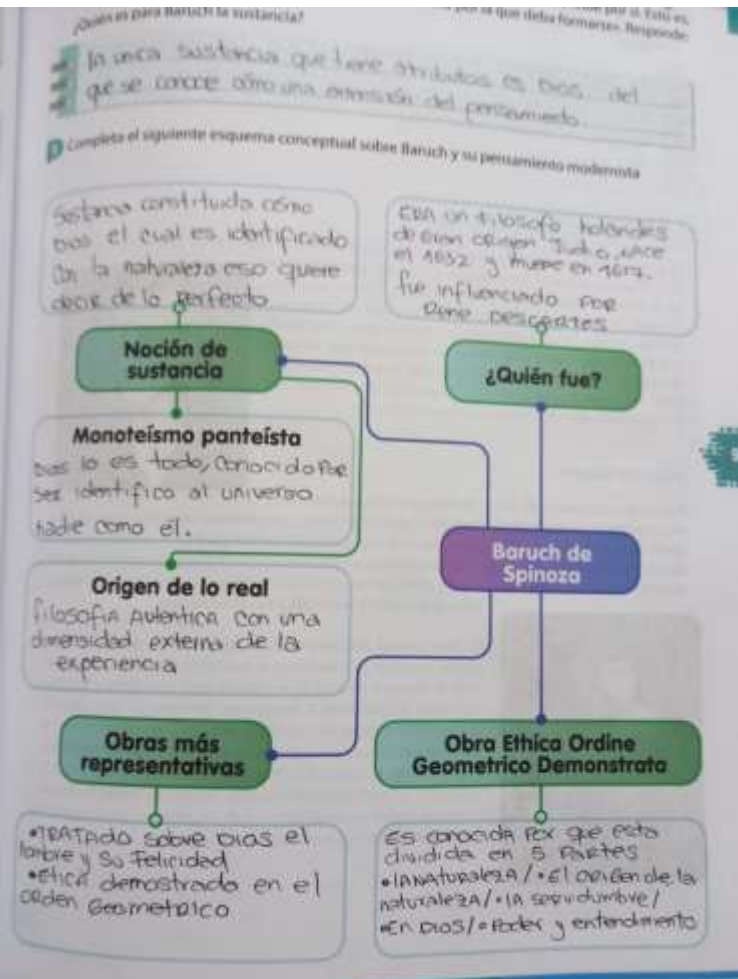 por sí. Esto es,
por la que deba formarse». Responde:
¿Quién es para Baruch la sustancia?
la unica sustancia que tiene atributos es Dios. del
que se conoce cómo una extensión del pensamiento.
Completa el siguiente esquema conceptual sobre Baruch y su pensamiento modernista
constituida cómo
Dios el cual es identificado
con la naturaleza eso quiere
decir de lo perfecto
ERA un filosofo holandes
de origen Judio, nace
el 1632 y muere en
fue influenciado POR
Rene DESCARTES
Noción de
sustancia
¿Quién fue?
Monoteísmo panteísta
Dios lo es todo, conocido Por
ser identifico al universo
nadie como él.
Baruch de
Spinoza
Origen de lo real
filosofiA Autentica con una
externa de la
experiencia
Obras más
representativas
Obra Ethica Ordine
Geometrico Demonstrata
•TRATAdo sobve Dios el
y su Felicidad
•Etica demostrado en el
ORden GeomEtRICO
ES conocidA POR que esta
dividida en 5 PARTES
•lANATURAlEZA/•El ORIGEN de la
naturalEZA/•lA servidumbre/
•En DIOS/•Poder y entendimiento